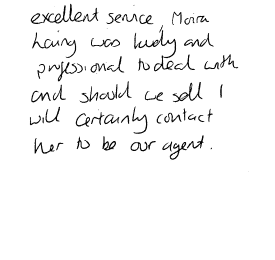 excellent service, Moira
Laing was lovely and
professional to deal with
and should we sell I
will certainly contact
her to be our agent.